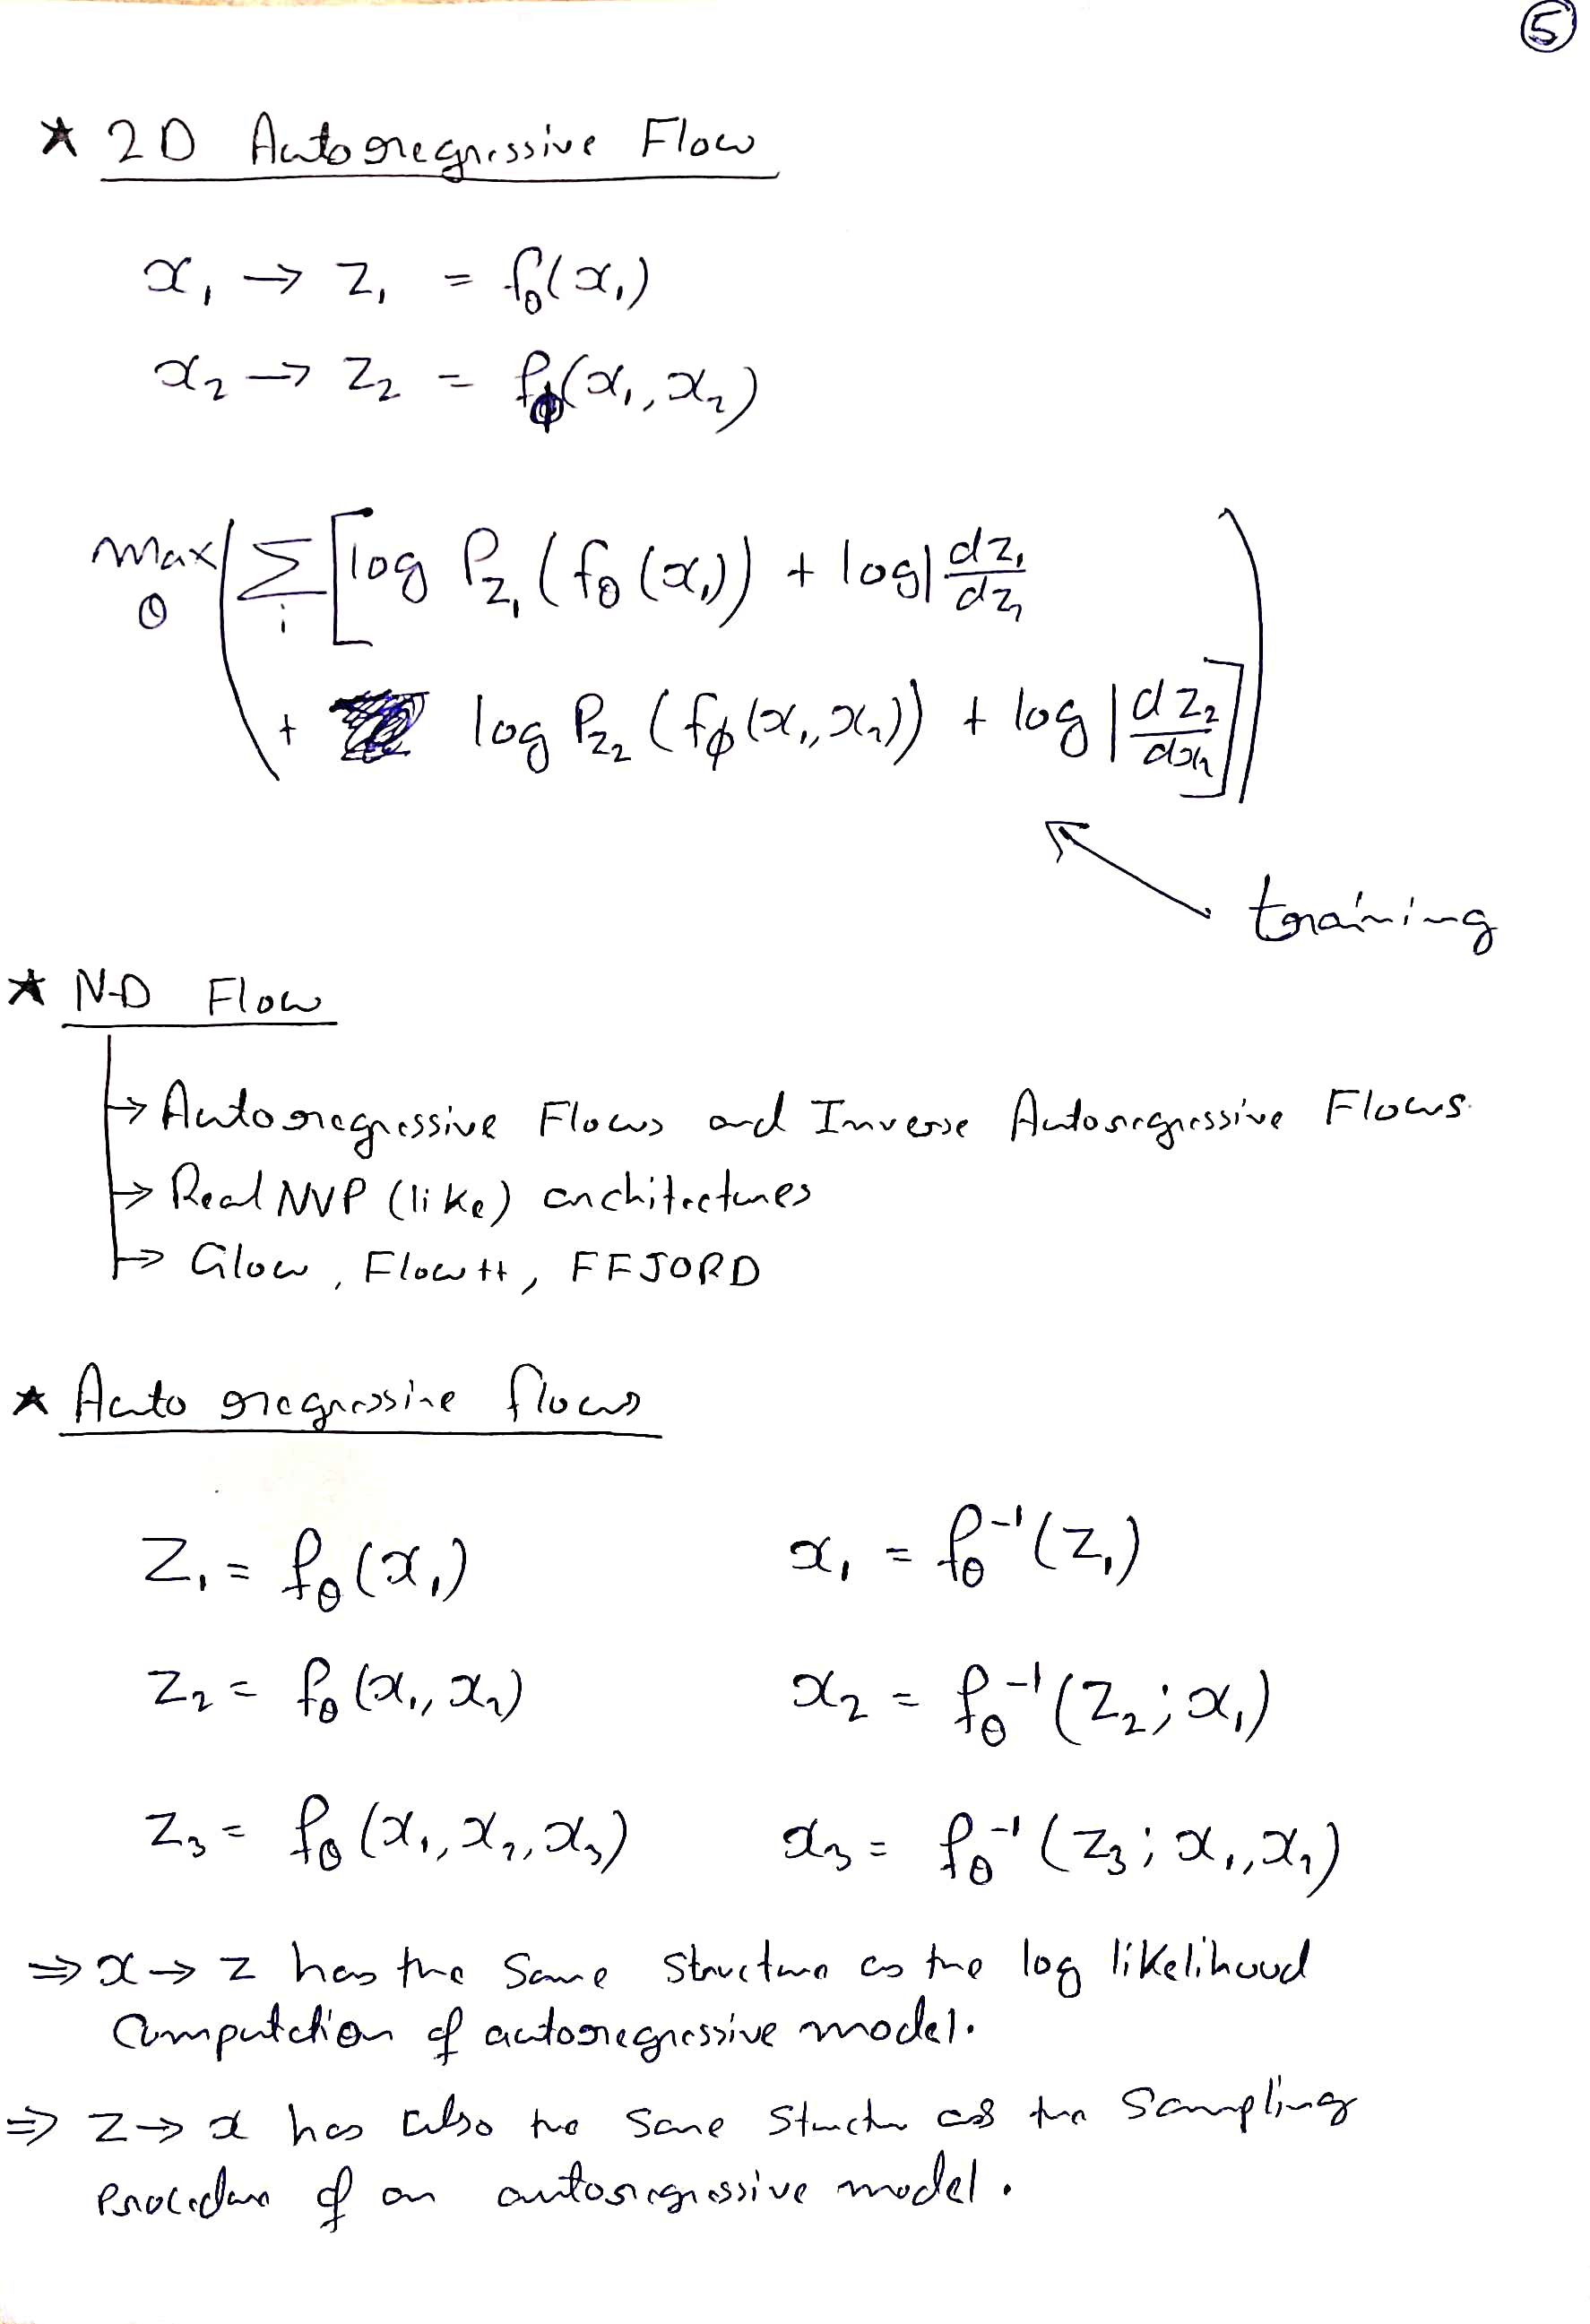 ⑤
* 2D Autoregressive Flow
x₁ → z₁ = f_θ(x₁)
x₂ → z₂ = f_ϕ(x₁, x₂)
max_θ ( Σ_i [ log P_{z₁} (f_θ(x₁)) + log| dz₁/dz₁
+ log P_{z₂} (f_ϕ(x₁, x₂)) + log | dz₂/dx₂ ] )
training
* N-D Flow
→ Autoregressive Flows and Inverse Autoregressive Flows.
→ Real NVP (like) architectures
→ Glow, Flow++, FFJORD
* Auto regressive flows
z₁ = f_θ(x₁) x₁ = f_θ⁻¹(z₁)
z₂ = f_θ(x₁, x₂) x₂ = f_θ⁻¹(z₂; x₁)
z₃ = f_θ(x₁, x₂, x₃) x₃ = f_θ⁻¹(z₃; x₁, x₂)
⇒ x → z has the same structure as the log likelihood
computation of autoregressive model.
⇒ z → x has also the same structure as the sampling
procedure of an autoregressive model.